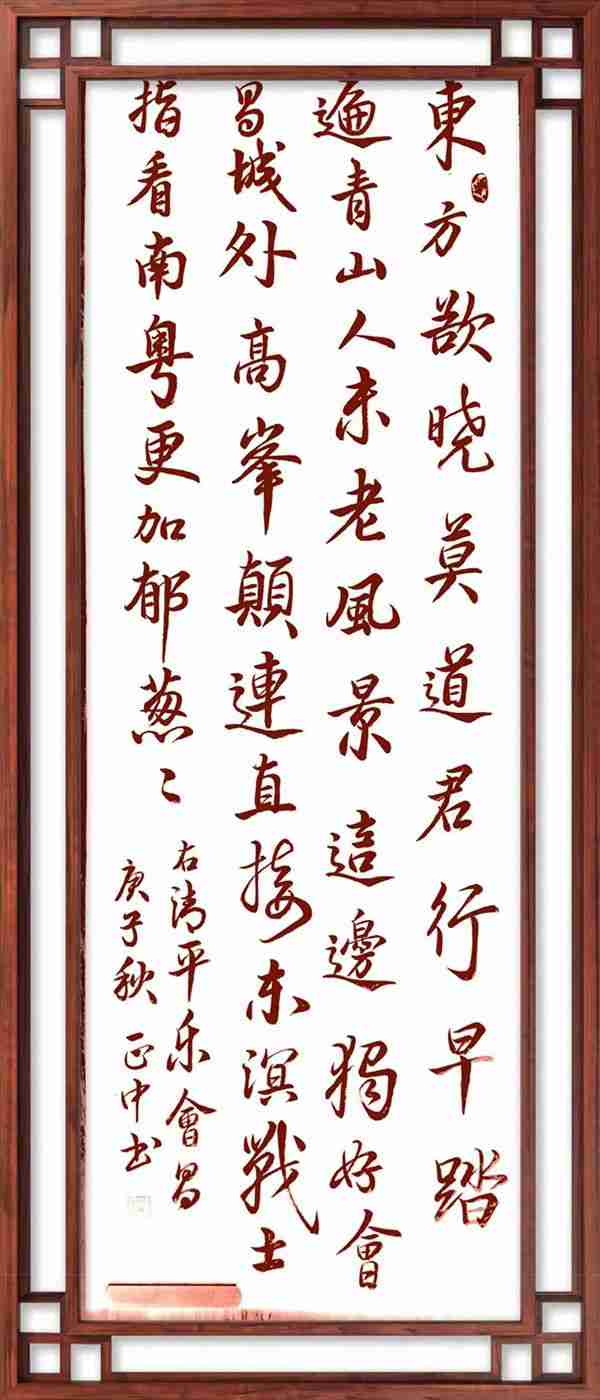 東方欲晓莫道君行早踏
遍青山人未老風景這邊獨好會
昌城外高峯顛連直接东溟戰士
指看南粤更加郁葱〻
右清平乐會昌
庚子秋正中书